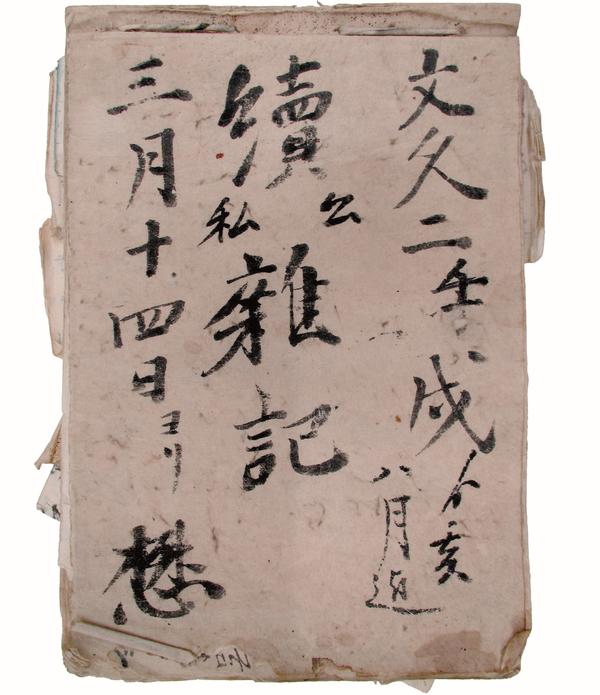 文久二壬戌ゟ亥
八月迠
續公私雜記
三月十四日ヨリ
懋